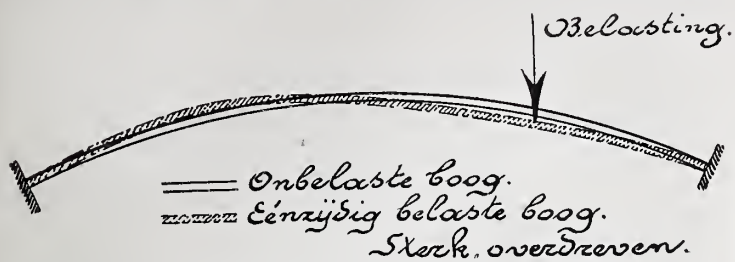 Belasting.
Onbelaste boog.
Eénzijdig belaste boog.
Sterk overdreven.